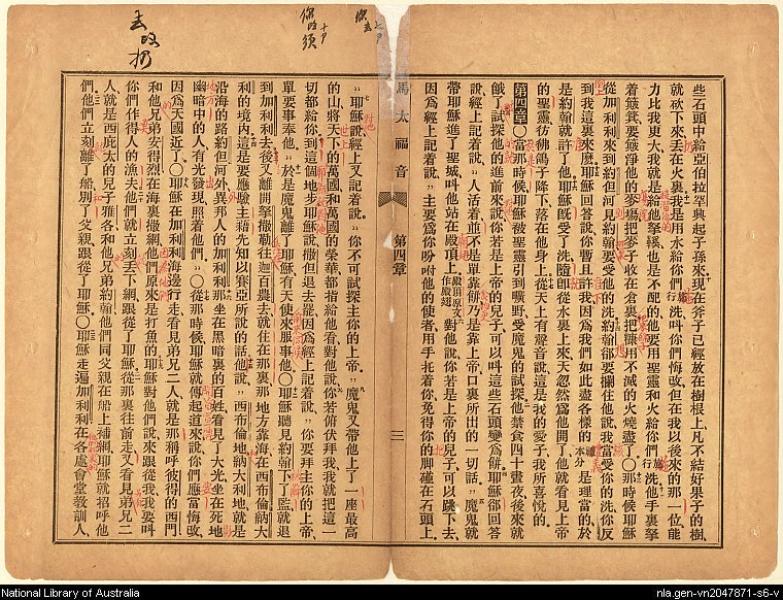 些石頭中給亞伯拉罕興起子孫來現在斧子已經放在樹根上凡不結好果子的樹
就砍下來丟在火裏我是用水給你們行洗叫你們悔改但在我以後來的那一位能
力比我更大我就是給他拏鞋也是不配的他要用聖靈和火給你們行洗他手裏拏
着簸箕要簸淨他的麥場把麥子收在倉裏把糠用不滅的火燒盡了〇那時候耶穌
從加利利來到約但河見約翰要受他的洗約翰卻要攔住他說我當受你的洗你反
到我這裏來麼耶穌回答說你暫且許我因爲我們如此盡各樣的本分是理當的於
是約翰就許了他耶穌既受了洗隨即從水裏上來天忽然爲他開了他就看見上帝
的聖靈彷彿鴿子降下落在他身上從天上有聲音說這是我的愛子我所喜悅的
第四章〇當那時候耶穌被聖靈引到曠野受魔鬼的試探他禁食四十晝夜後來就
餓了試探他的進前來說你若是上帝的兒子可以叫這些石頭變爲餅耶穌卻回答
說經上記着說人活着並不是單靠餅乃是靠上帝口裏所出的一切話魔鬼就
帶耶穌進了聖城叫他站在殿頂上殿頂原文作殿翅對他說你若是上帝的兒子可以跳下去
因爲經上記着說主要爲你吩咐他的使者用手托着你免得你的脚碰在石頭上
馬太福音 第四章 三
耶穌說經上又記着說你不可試探主你的上帝魔鬼又帶他上了一座最高
的山將天下的萬國和萬國的榮華都指給他看對他說你若俯伏拜我我就把這一
切都給你到這個地步耶穌說撒但退去罷因爲經上記着說你要拜主你的上帝
單要事奉他於是魔鬼離了耶穌有天使來服事他〇耶穌聽見約翰下了監就退
到加利利去後又離開拏撒勒往迦百農去就住在那裏那地方靠海在西布倫納大
利的境內這是要應驗主藉先知以賽亞所說的話他說西布倫地納大利地就是
沿海的路約但河外異邦人的加利利那坐在黑暗裏的百姓看見了大光坐在死地
幽暗中的人有光發現照着他們〇從那時候耶穌就傳起道來說你們應當悔改
因爲天國近了〇耶穌在加利利海邊行走看見弟兄二人就是那稱呼彼得的西門
和他兄弟安得烈在海裏撒網他們原來是打魚的耶穌對他們說來跟從我我要叫
你們作得人的漁夫他們就立刻丟下網跟從了耶穌從那裏往前走又看見弟兄二
人就是西庇太的兒子雅各和他兄弟約翰他們同父親在船上補網耶穌就招呼他
們他們立刻離了船別了父親跟從了耶穌〇耶穌走遍加利利在各處會堂教訓人
National Library of Australia
nla.gen-vn2047871-s6-v